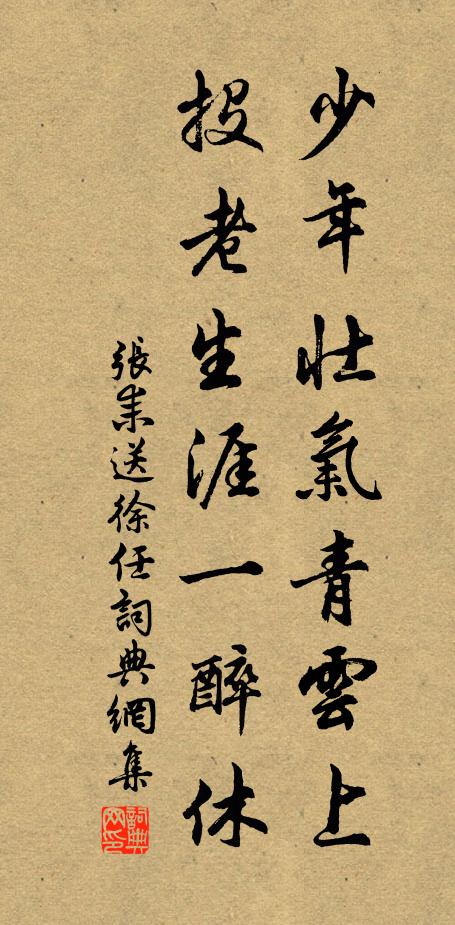 少年壯氣青雲上
投老生涯一醉休
張耒送徐任詞典網集
詞典网印